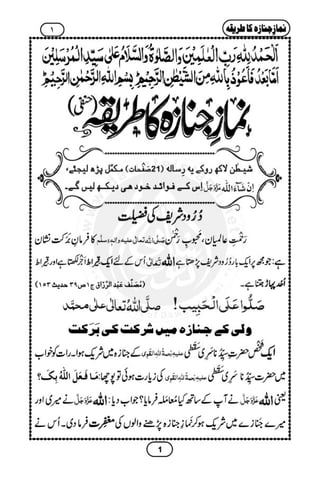 نمازِ جنازہ کا طریقہ
۱
اَلْحَمْدُ لِلّٰہِ رَبِّ الْعٰلَمِیْنَ وَالصَّلٰوۃُ وَالسَّلَامُ عَلٰی سَیِّدِ الْمُرْسَلِیْنَ
اَمَّابَعْدُ فَاَعُوْذُ بِاللّٰہِ مِنَ الشَّیْطٰنِ الرَّجِیْمِ ؕ بِسْمِ اللّٰہِ الرَّحْمٰنِ الرَّحِیْمِ ؕ
نمازِ جنازہ کا طریقہ (حنفی)
شیطٰن لاکھ روکے یہ رِسالہ (21صَفْحات) مکمَّل پڑھ لیجئے،
اِنْ شَآءَ اللہ عَزَّوَجَلَّ اِس کے فوائد خود ھی دیکھ لیں گے۔
دُرُود شریف کی فضیلت
رَحمتِ عالمیان، محبوبِ رَحمٰن صلَّی اللہُ تعالٰی علیہ واٰلہٖ وسلَّم کا فرمانِ بَرَکت نشان
ہے: جو مجھ پر ایک بار دُرُود شریف پڑھتا ہے اللہ تعالٰی اُس کے لئے ایک قیراط اَجر لکھتا ہے اور قیراط
اُحُد پہاڑ جتنا ہے۔ (مُصَنَّف عَبْد الرَّزّاق ج ۱ ص ۳۹ حدیث ۱۵۳)
صَلُّوا عَلَی الْحَبِیْب! صلَّی اللہُ تعالٰی علٰی محمَّد
ولی کے جنازہ میں شرکت کی بَرَکت
ایک شَخْص حضرتِ سیِّدُنا سَری سَقَطی علیہ رَحْمَۃُ اللہِ القَوِی کے جنازہ میں شریک ہوا۔ رات کو خواب
میں حضرتِ سیِّدُنا سَری سَقَطی علیہ رَحْمَۃُ اللہِ القَوِی کی زیارت ہوئی تو پوچھا: مَا فَعَلَ اللہُ بِکَ؟
یعنی اللہ عَزَّوَجَلَّ نے آپ کے ساتھ کیا مُعامَلہ فرمایا؟ جواب دیا: اللہ عَزَّوَجَلَّ نے میری اور
میرے جنازے میں شریک ہو کر نمازِ جنازہ پڑھنے والوں کی مغفِرت فرما دی۔ اُس نے
1